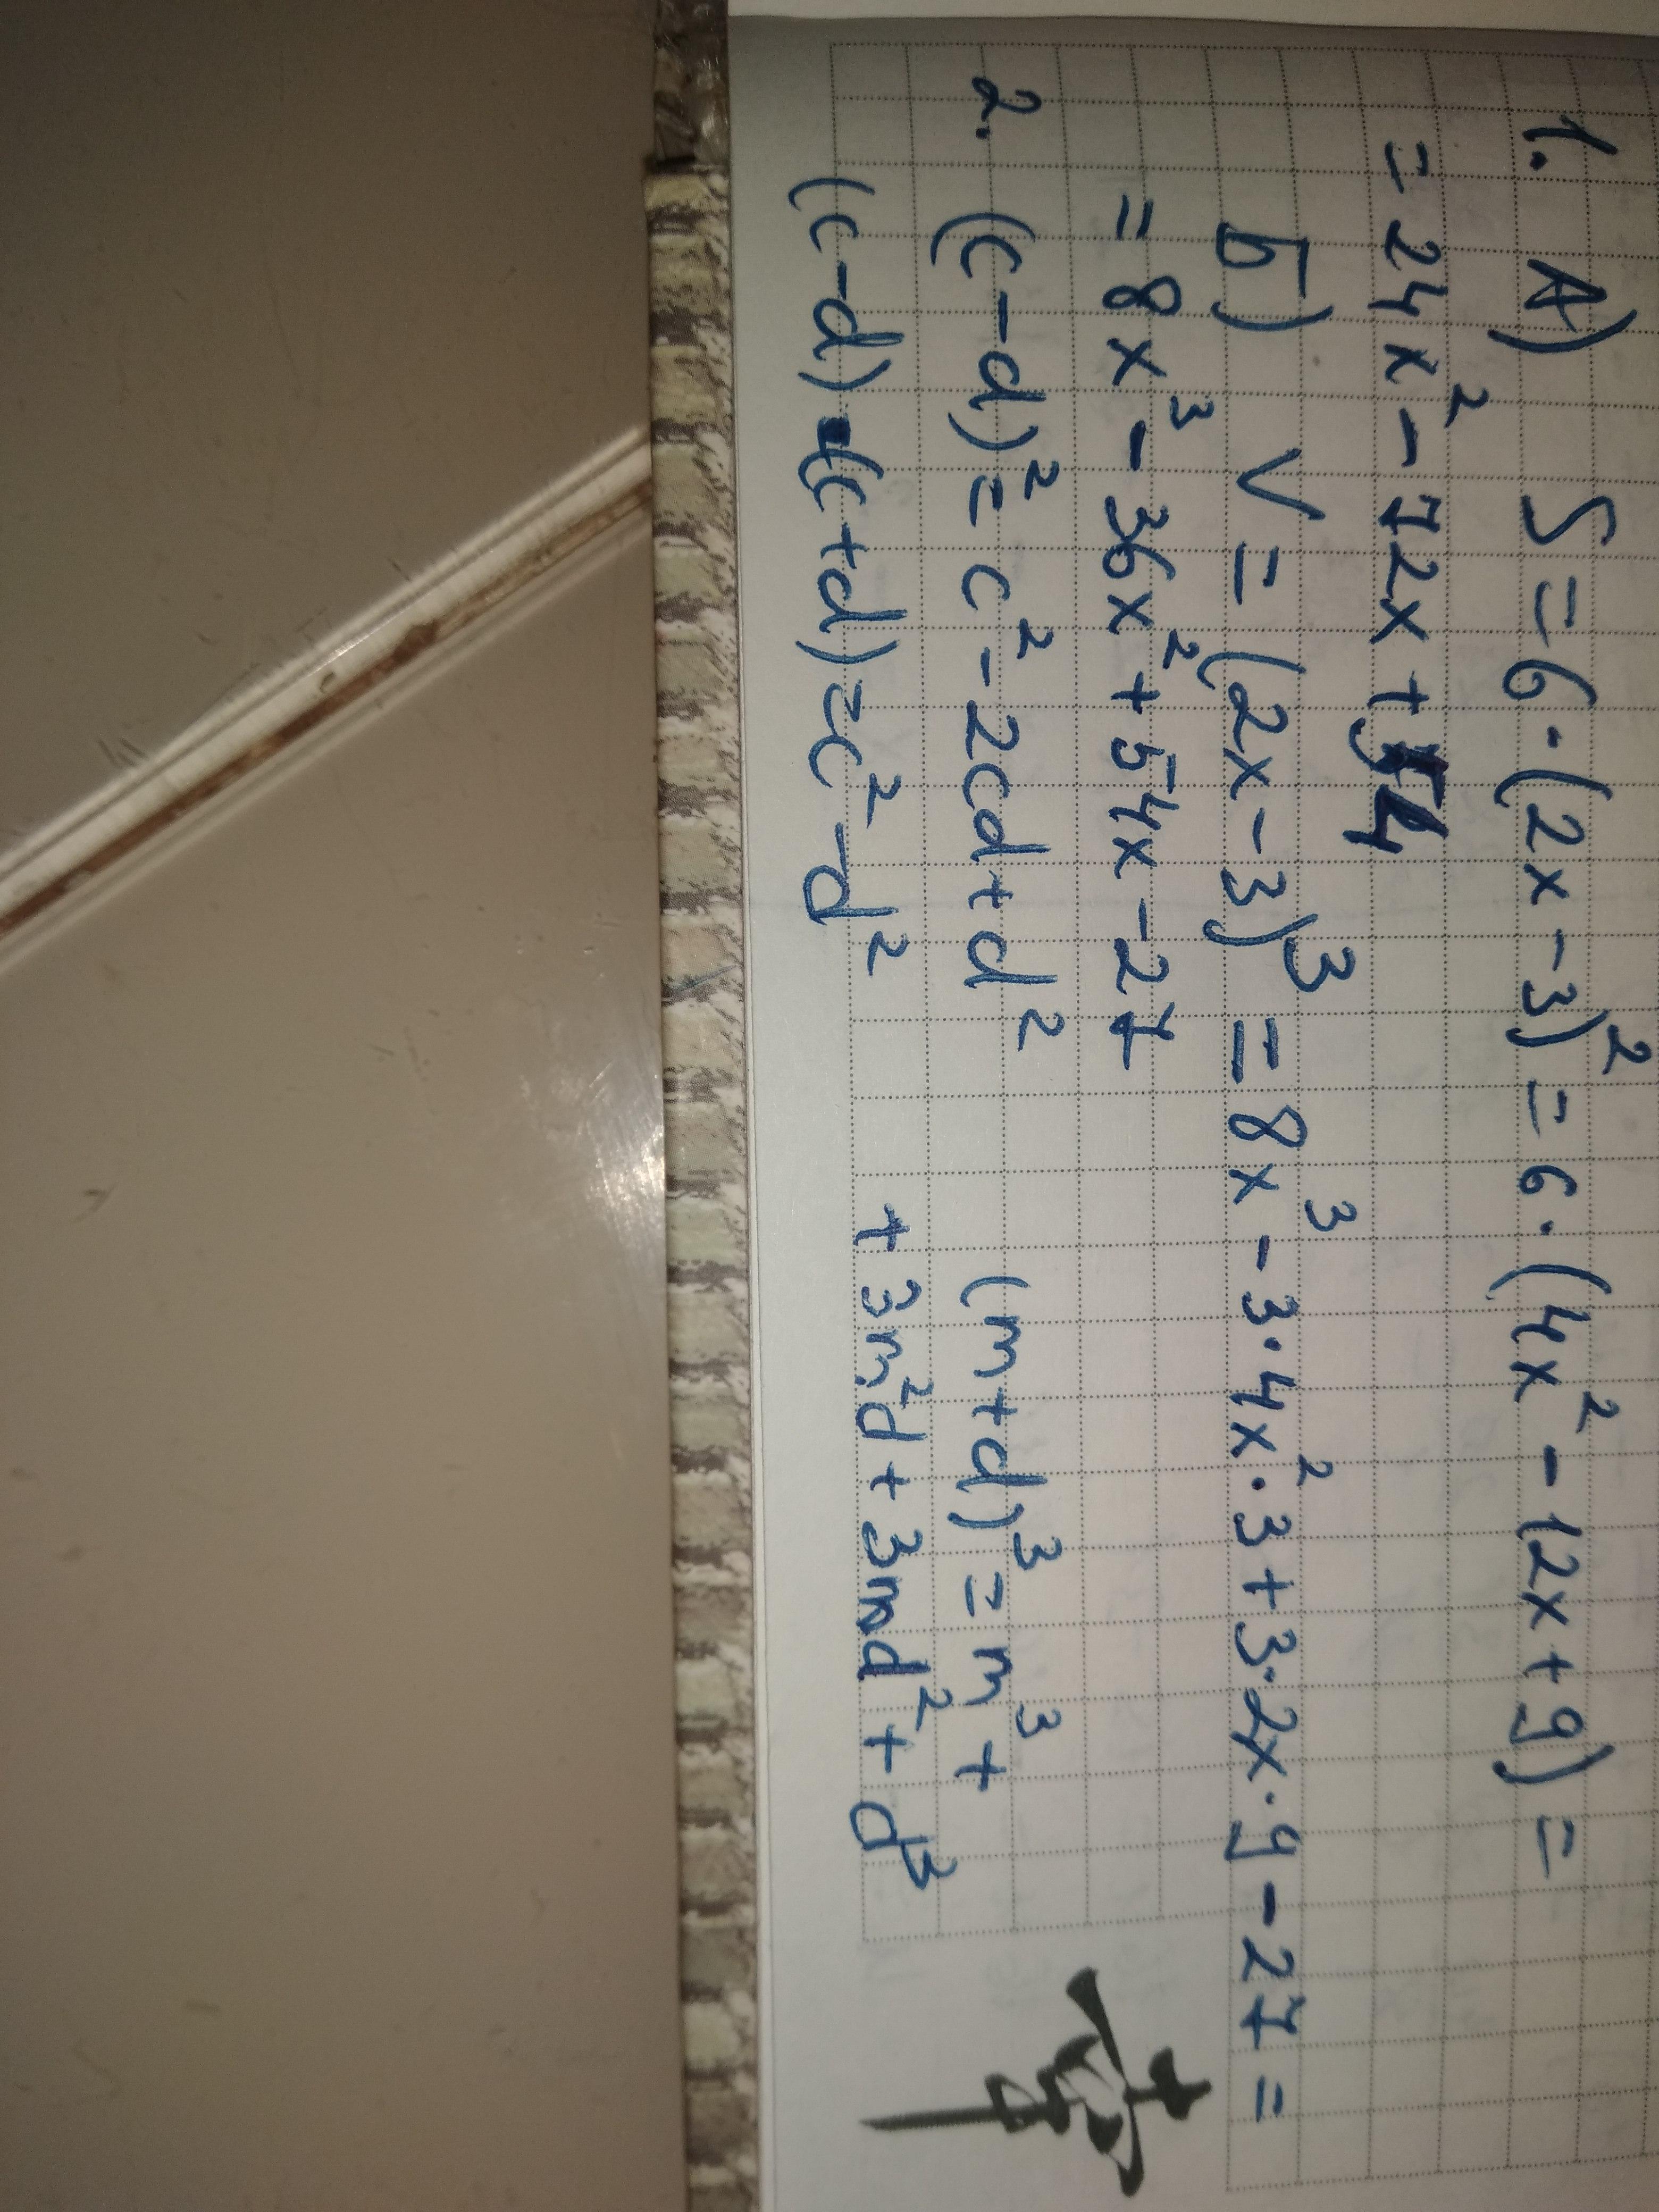 1. А) S = 6 · (2x - 3)² = 6 · (4x² - 12x + 9) =
= 24x² - 72x + 54
Б) V = (2x - 3)³ = 8x³ - 3 · 4x² · 3 + 3 · 2x · 9 - 27 =
= 8x³ - 36x² + 54x - 27
2. (c - d)² = c² - 2cd + d²
(c - d) · (c + d) = c² - d²
(m + d)³ = m³ +
+ 3m²d + 3md² + d³